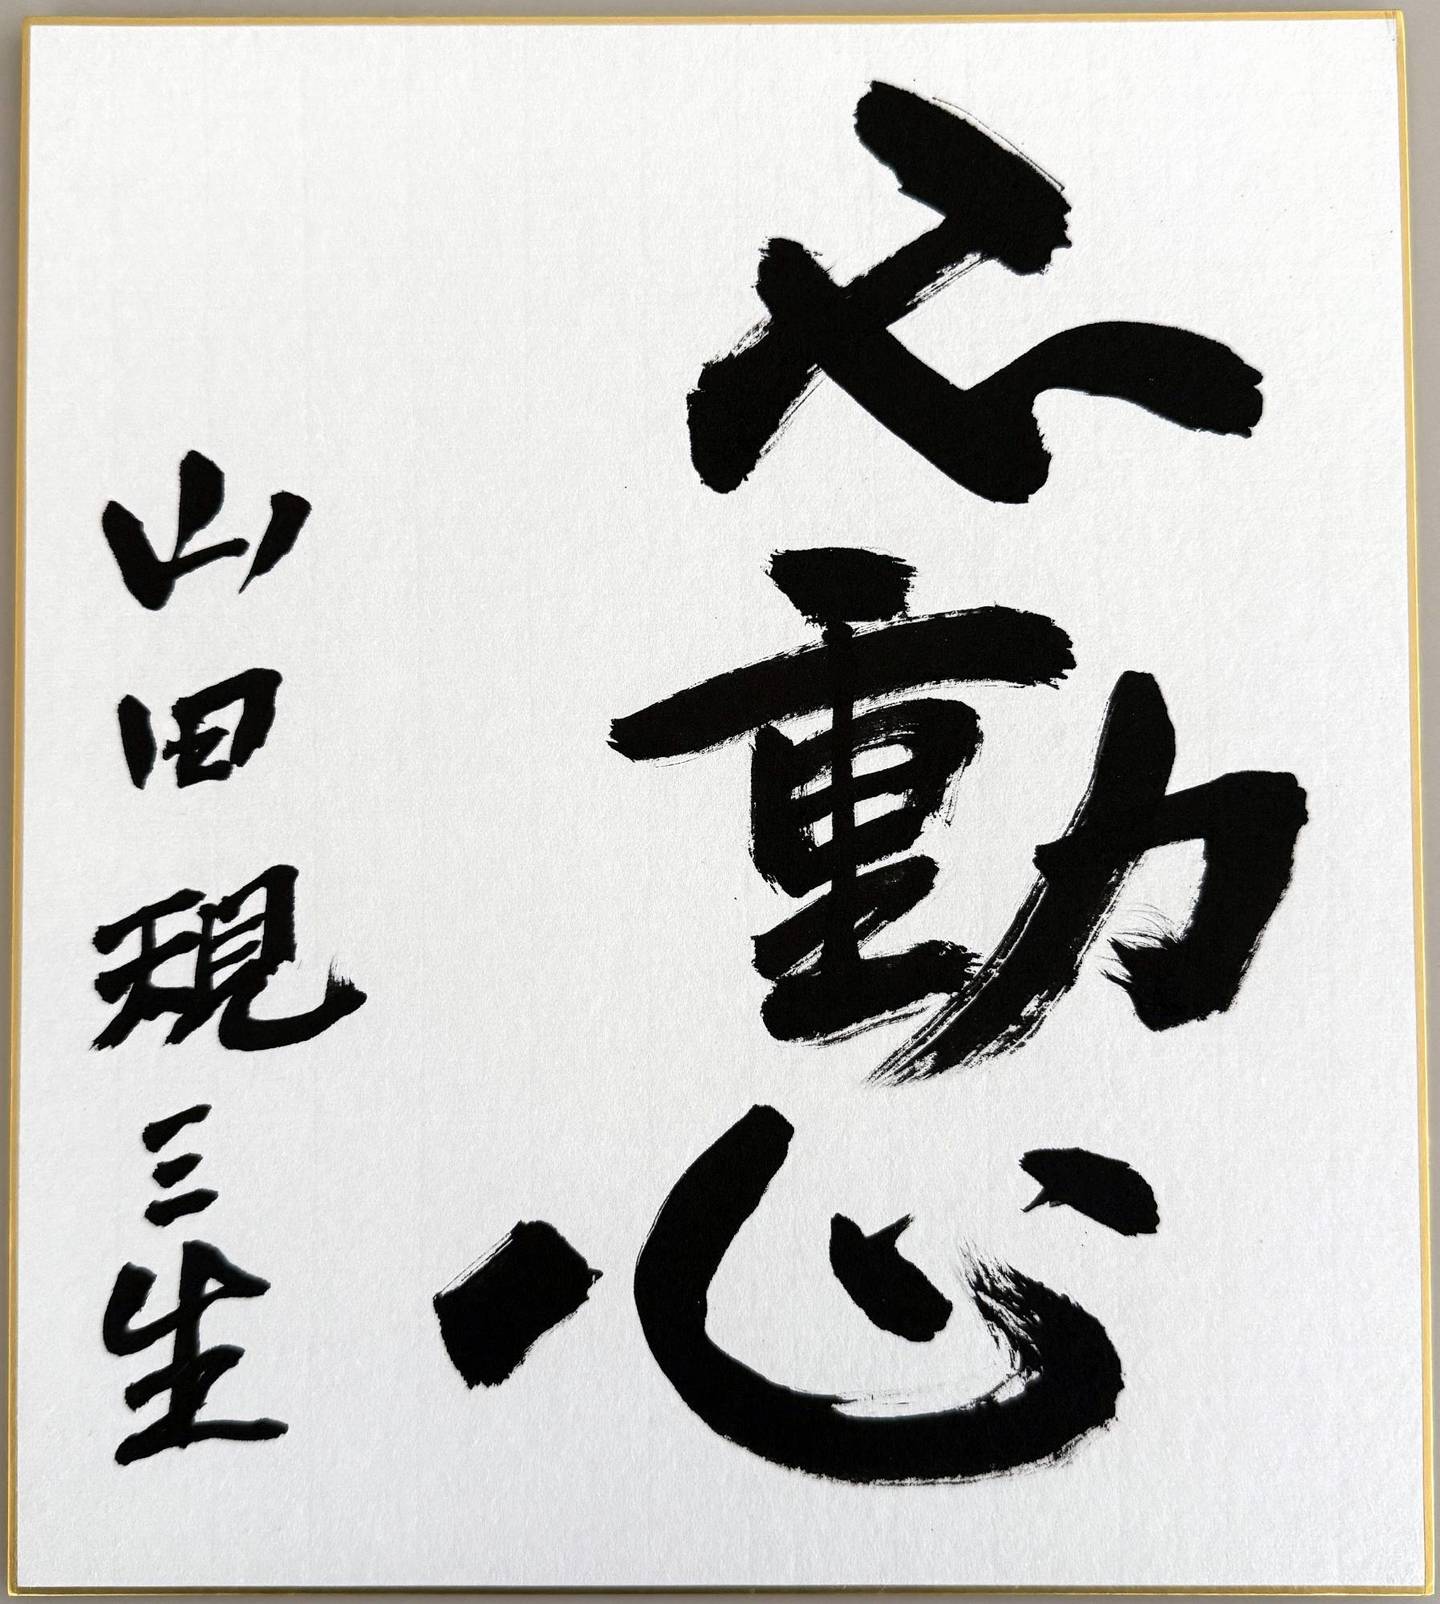 不動心
山田規三生